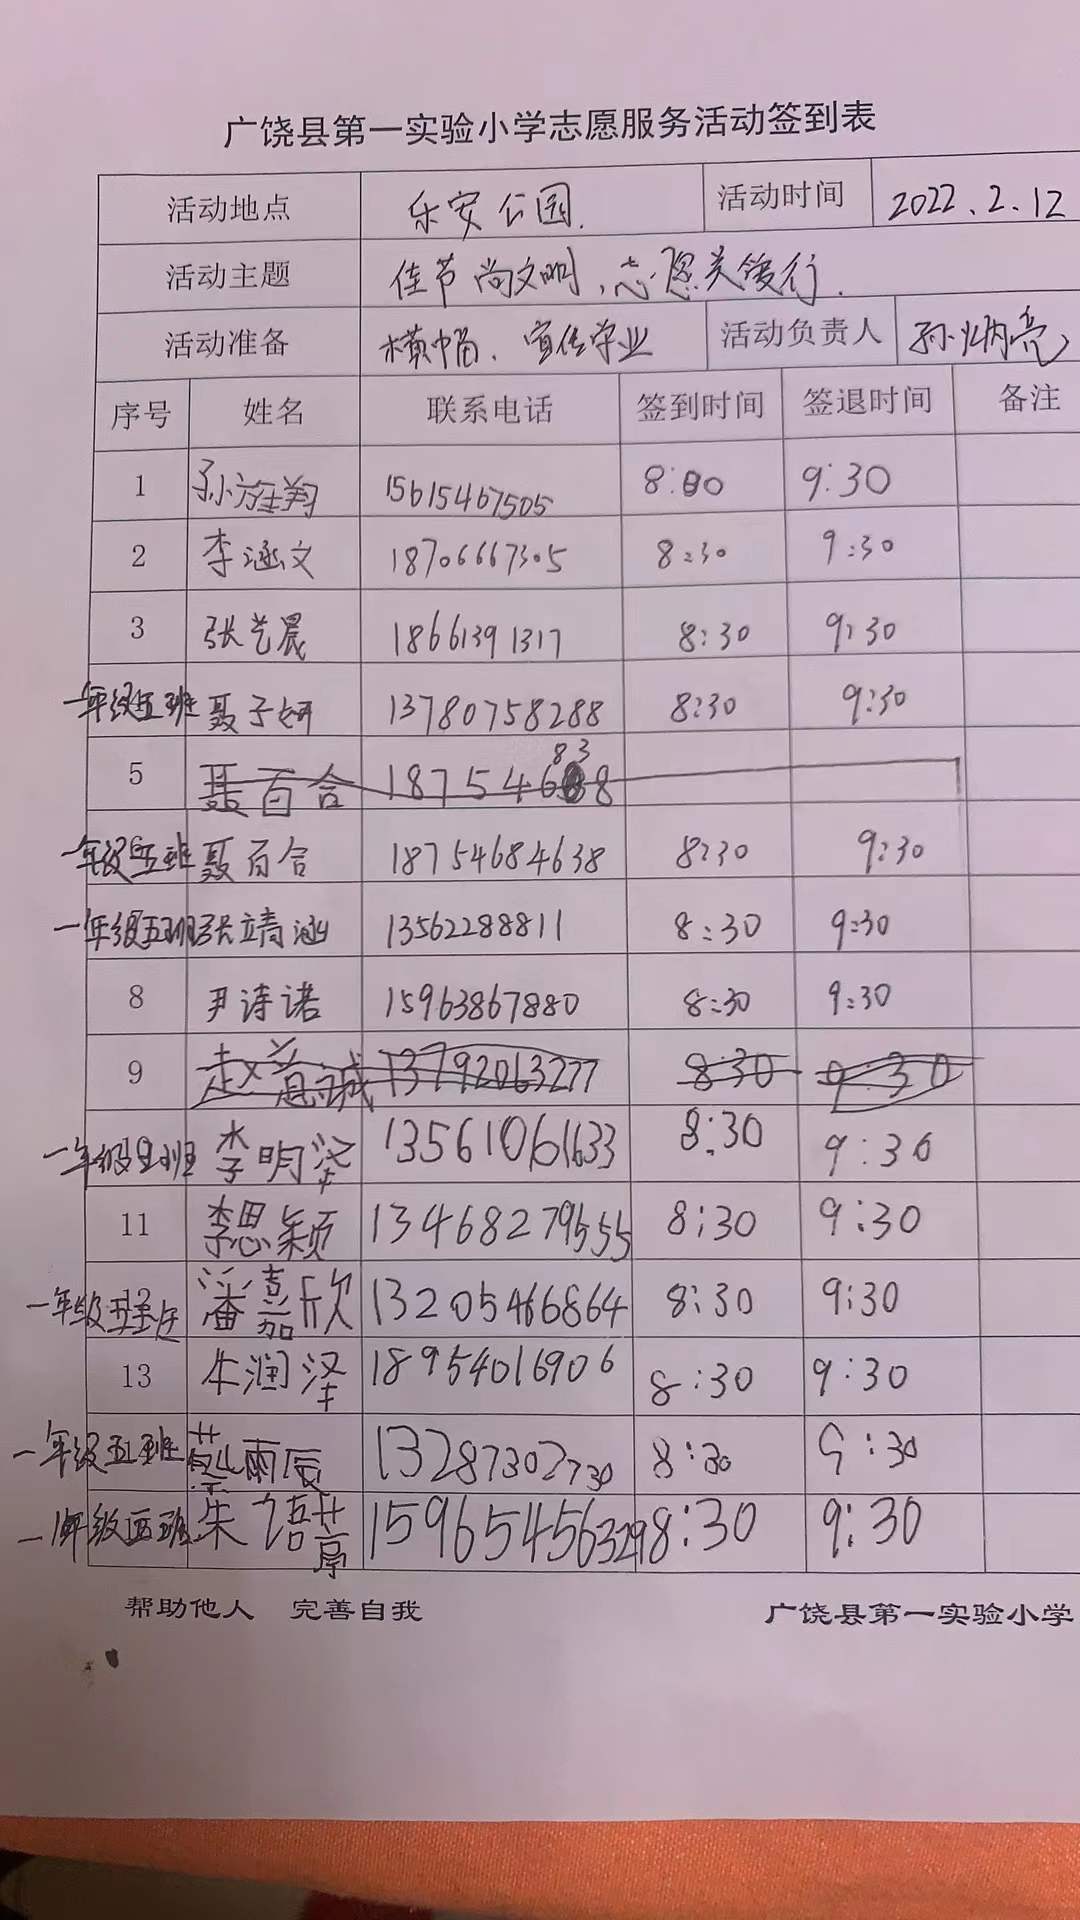 广饶县第一实验小学志愿服务活动签到表
活动地点 乐安公园. 活动时间 2022.2.12
活动主题 佳节尚文明,志愿关爱行.
活动准备 横幅、宣传 活动负责人 孙炳亮
序号 姓名 联系电话 签到时间 签退时间 备注
1 孙 翔 15615467505 8:00 9:30
2 李涵文 18706667305 8:30 9:30
3 张艺晨 18661391317 8:30 9:30
一年级五班 聂子妍 13780758288 8:30 9:30
5 聂百合
一年级五班 聂百合 18754684638 8:30 9:30
一年级五班 张靖涵 13562288811 8:30 9:30
8 尹诗诺 15963867880 8:30 9:30
9 赵 诚 13792063277 8:30 9:30
一年级五班 李明泽 13561061633 8:30 9:30
11 李思颖 13468279555 8:30 9:30
一年级五班 潘嘉欣 13205466864 8:30 9:30
13 牛润泽 18954016906 8:30 9:30
一年级五班 雨辰 13287302730 8:30 9:30
一年级五班 朱语葶 15965456329 8:30 9:30
帮助他人 完善自我 广饶县第一实验小学